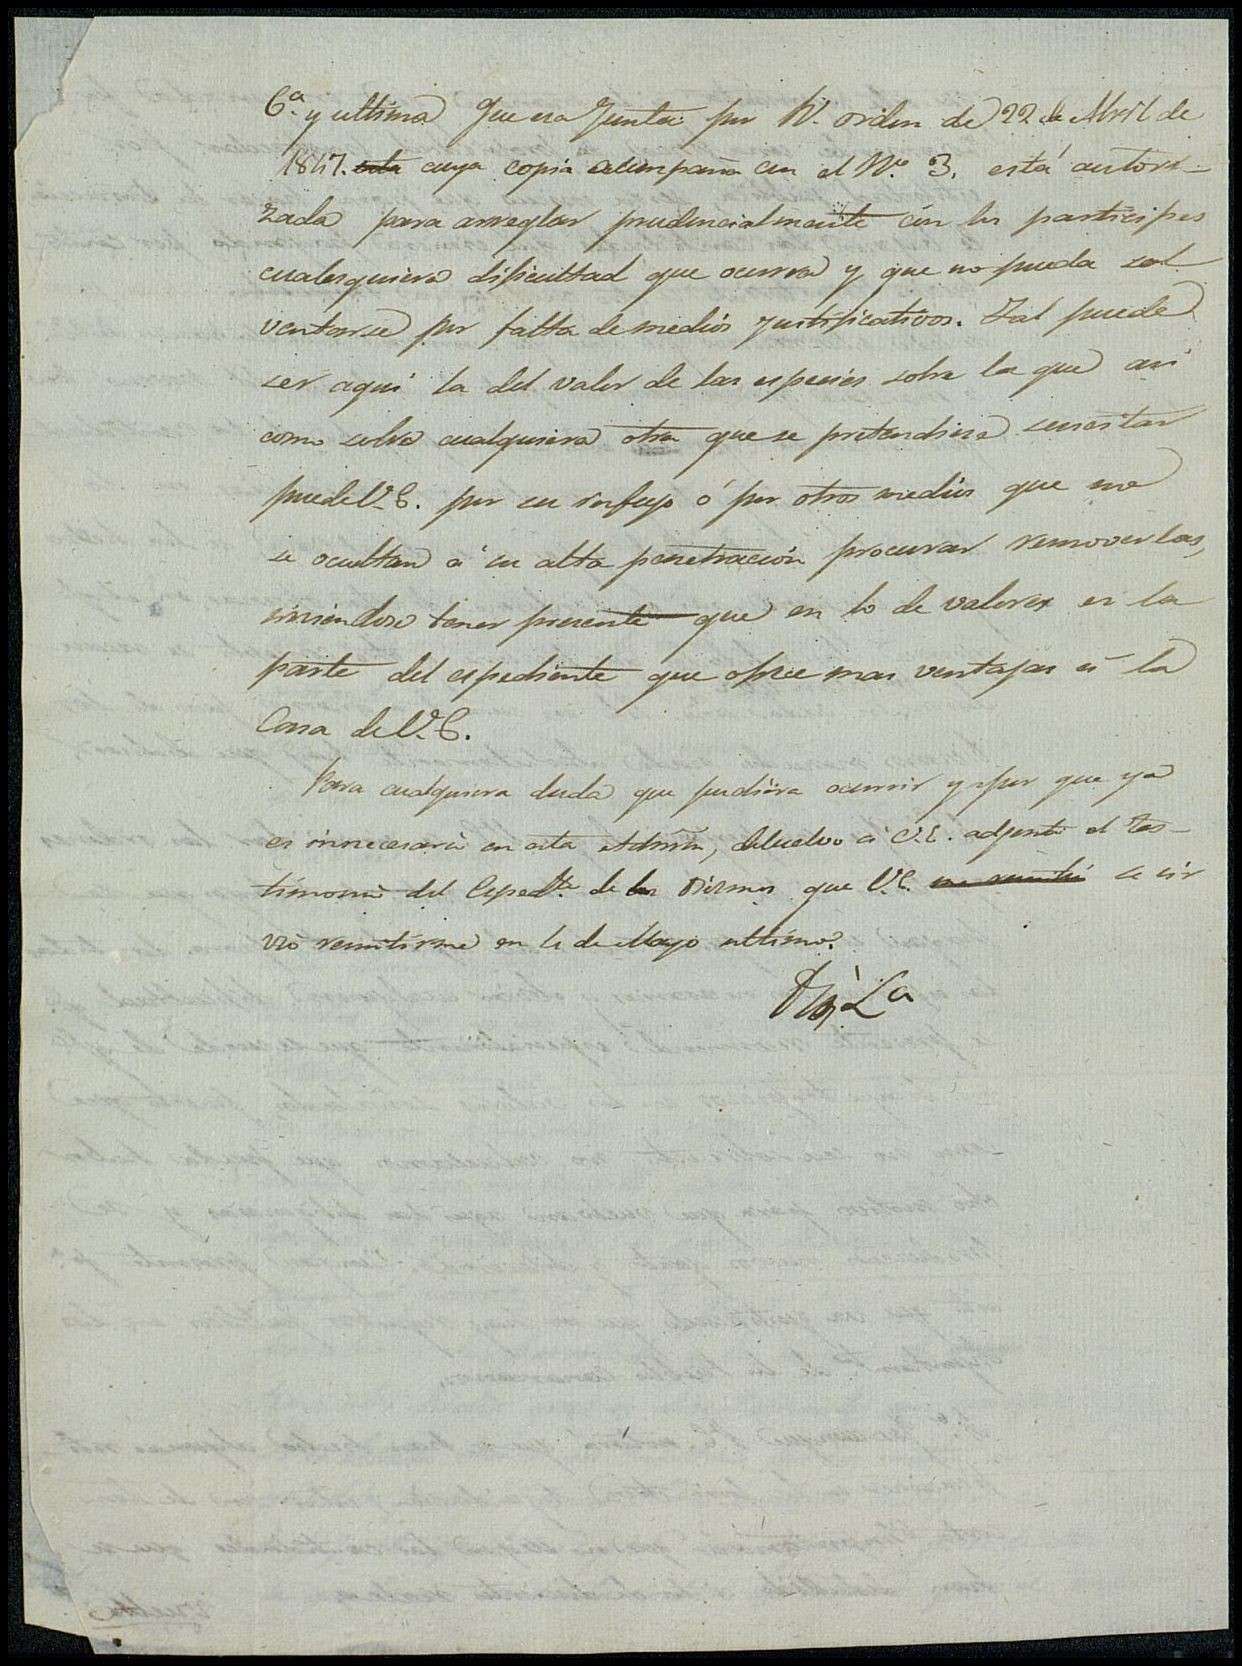 6.ª y ultima Que esa Junta por R.l orden de 22 de Abril de
1847. esta cuya copia acompaña con el N.º 3. está autori-
zada para arreglar prudencialmente con los participes
cualesquiera dificultad que ocurra y que no pueda sol
ventarse por falta de medios justificativos. Tal puede
ser aqui la del valor de las especies sobre la que asi
como sobre cualquiera otra que se pretendiera suscitar
puede V. E. por su influjo ó por otros medios que no
se ocultan á su alta penetracion procurar removerlas,
sirviendose tener presente que en lo de valores es la
parte del espediente que ofrece mas ventajas á la
Casa de V. E.
Para cualquiera duda que pudiera ocurrir y por que ya
es innecesario en esta Admon, debuelvo á V. E. adjunto el Tes-
timonio del Esped.te de los Diezmos que V. E. me remitió se sir
vió remitirme en 4 de Mayo ultimo.